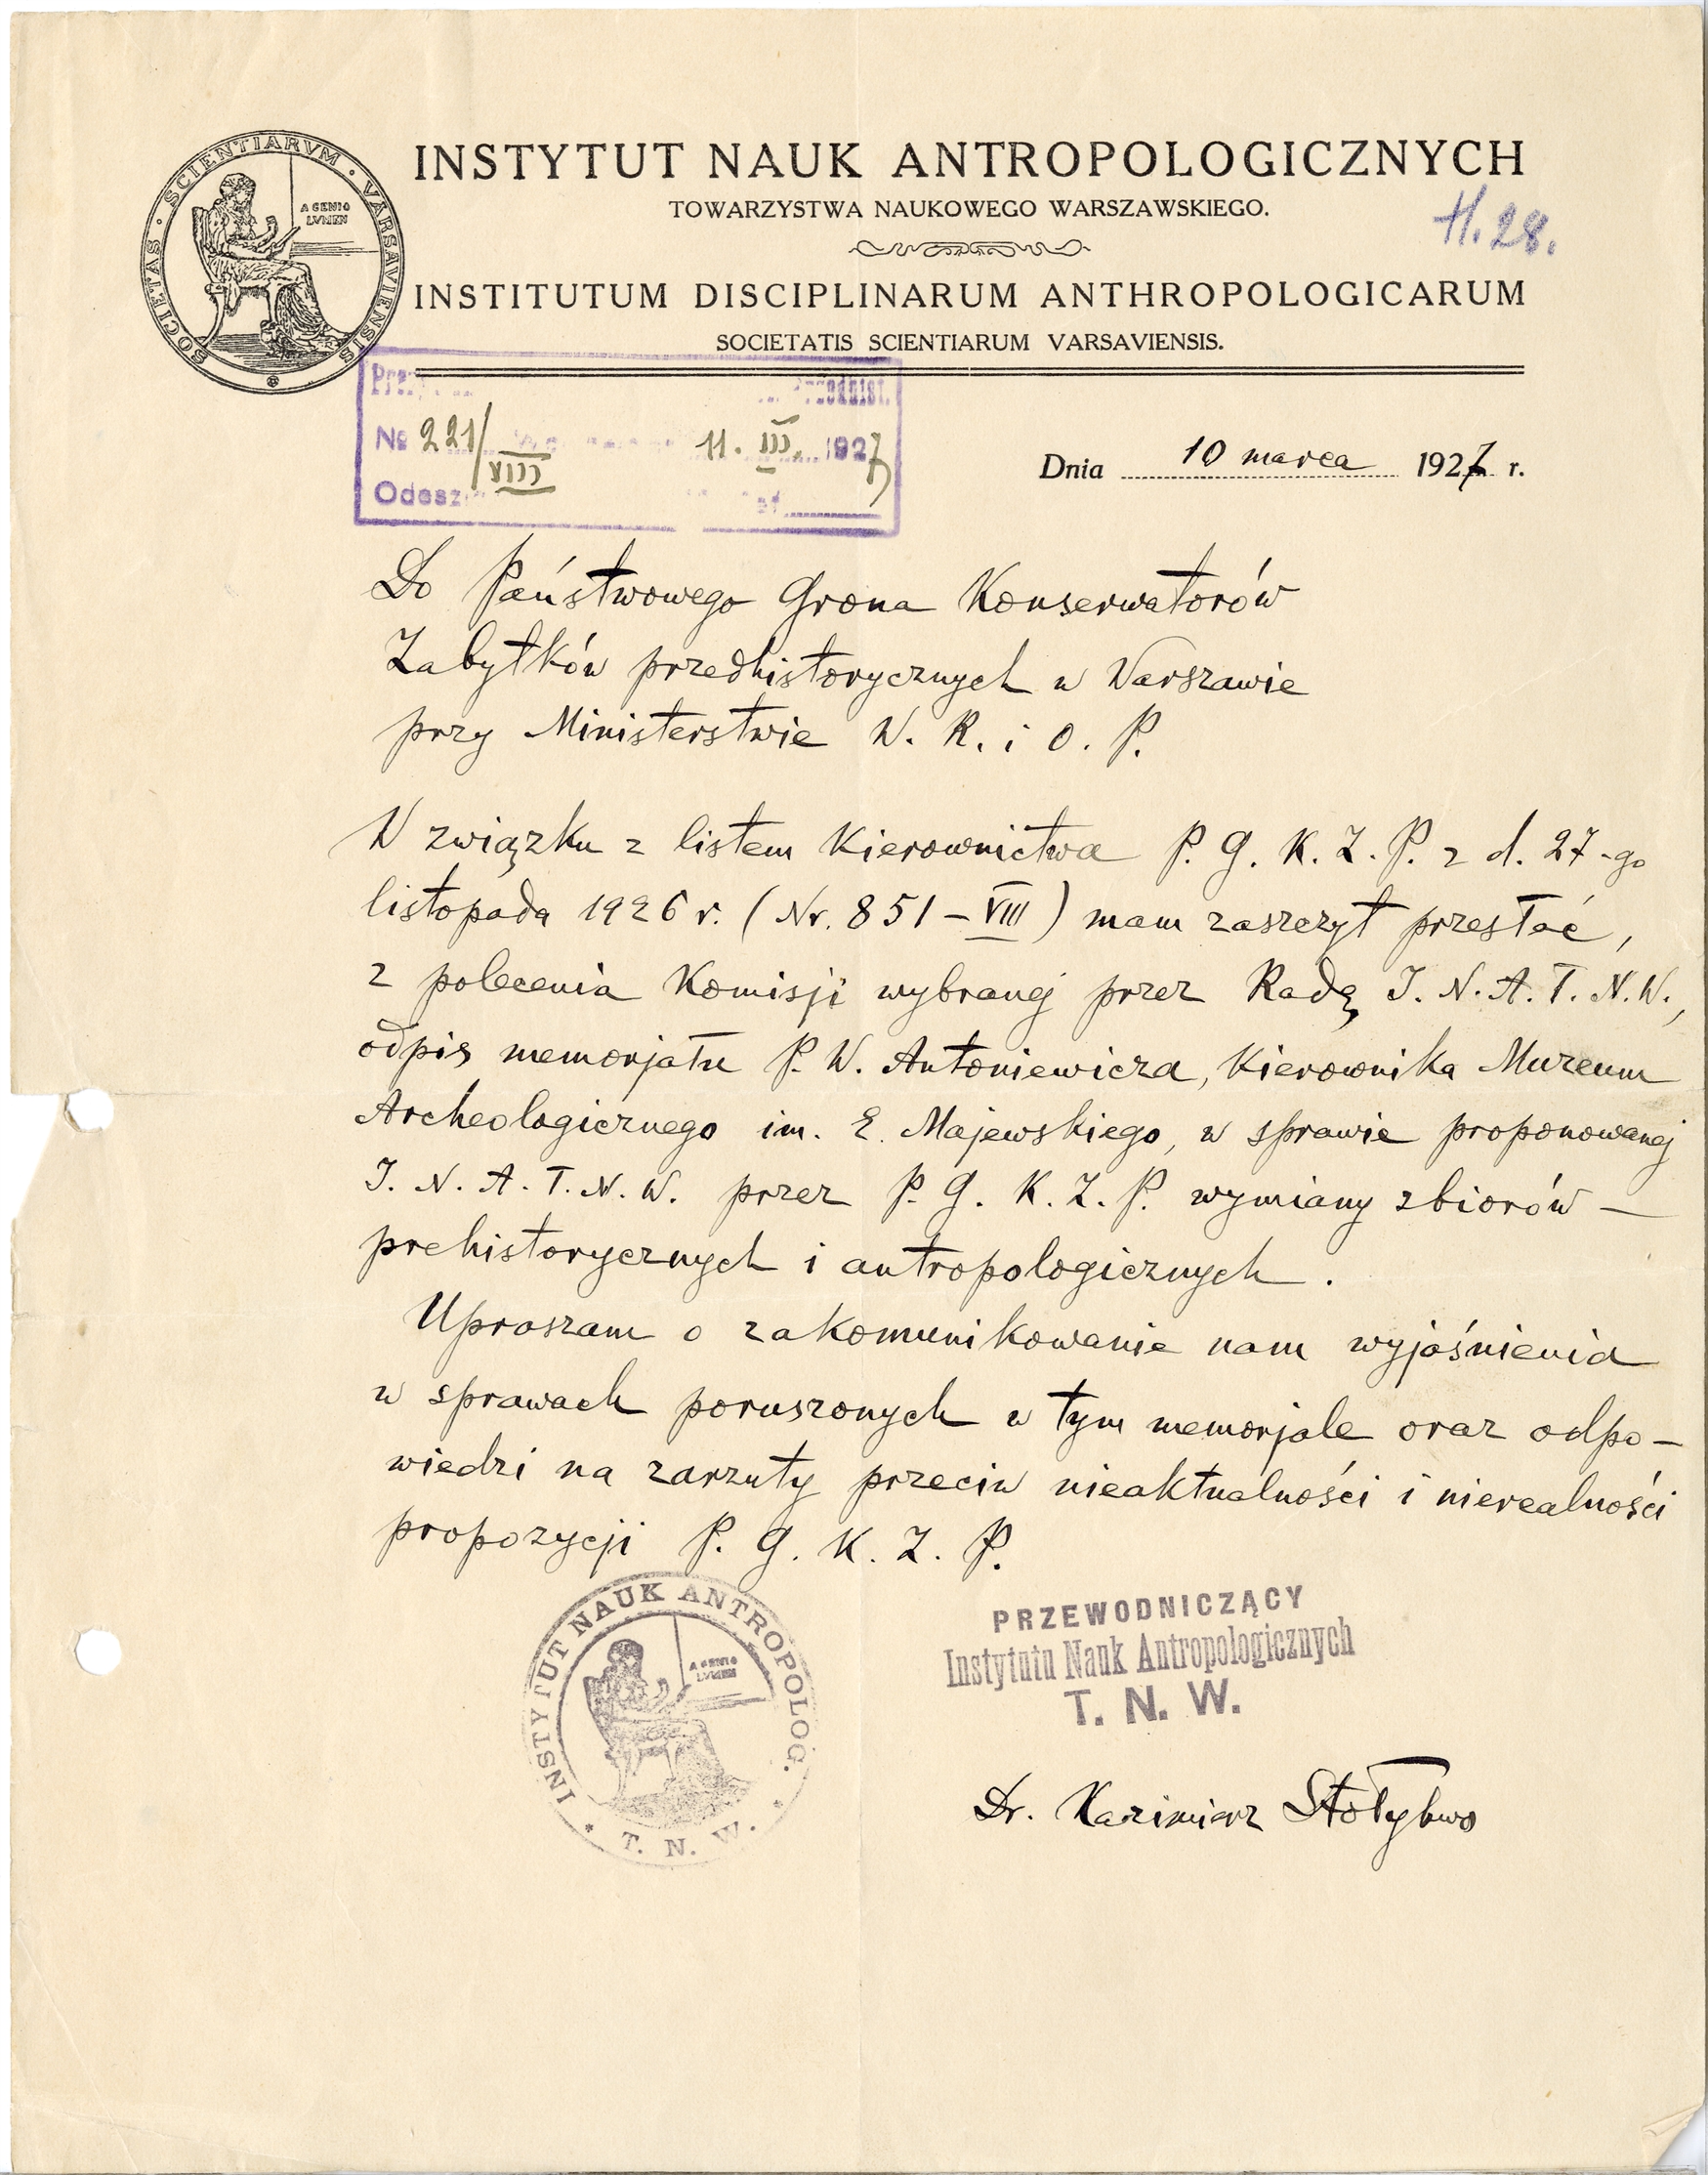 SOCIETAS · SCIENTIARVM · VARSAVIENSIS
A GENIO
LVMEN
INSTYTUT NAUK ANTROPOLOGICZNYCH
TOWARZYSTWA NAUKOWEGO WARSZAWSKIEGO.
H. 28.
INSTITUTUM DISCIPLINARUM ANTHROPOLOGICARUM
SOCIETATIS SCIENTIARUM VARSAVIENSIS.
№ 221/VIII 11. III. 1927
Dnia 10 marca 1927 r.
Do Państwowego Grona Konserwatorów
Zabytków przedhistorycznych w Warszawie
przy Ministerstwie W. R. i O. P.
W związku z listem Kierownictwa P. G. K. Z. P. z d. 27-go
listopada 1926 r. (Nr. 851 – VIII) mam zaszczyt przesłać,
z polecenia Komisji wybranej przez Radę I. N. A. T. N. W.,
odpis memorjału P. W. Antoniewicza, Kierownika Muzeum
Archeologicznego im. E. Majewskiego, w sprawie proponowanej
I. N. A. T. N. W. przez P. G. K. Z. P. wymiany zbiorów –
prehistorycznych i antropologicznych.
Upraszam o zakomunikowanie nam wyjaśnienia
w sprawach poruszonych w tym memorjale oraz odpo-
wiedzi na zarzuty przeciw nieaktualności i nierealności
propozycji P. G. K. Z. P.
INSTYTUT NAUK ANTROPOLOG.
* T. N. W. *
A GENIO
LVMEN
PRZEWODNICZĄCY
Instytutu Nauk Antropologicznych
T. N. W.
Dr. Kazimierz Stołyhwo